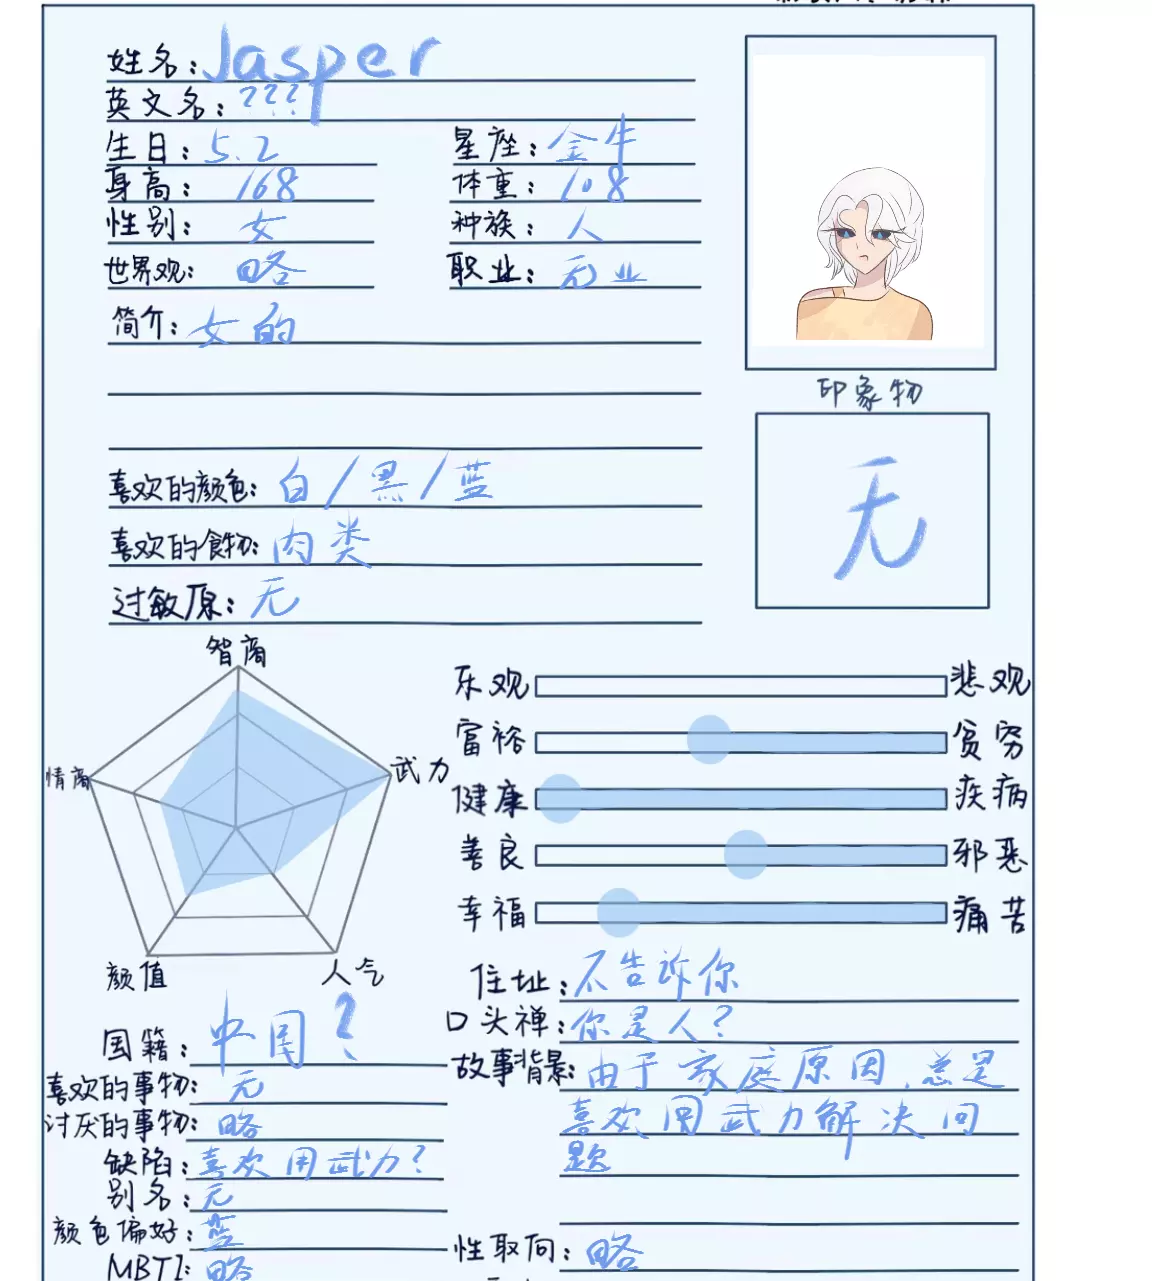 姓名：Jasper
英文名：???
生日：5.2 星座：金牛
身高：168 体重：108
性别：女 种族：人
世界观：略 职业：无业
简介：女的
印象物
无
喜欢的颜色：白/黑/蓝
喜欢的食物：肉类
过敏原：无
智商
武力
人气
颜值
情商
乐观 悲观
富裕 贫穷
健康 疾病
善良 邪恶
幸福 痛苦
住址：不告诉你
口头禅：你是人？
故事背景：由于家庭原因，总是
喜欢用武力解决问
题
国籍：中国？
喜欢的事物：无
讨厌的事物：略
缺陷：喜欢用武力？
别名：无
颜色偏好：蓝
MBTI：略
性取向：略